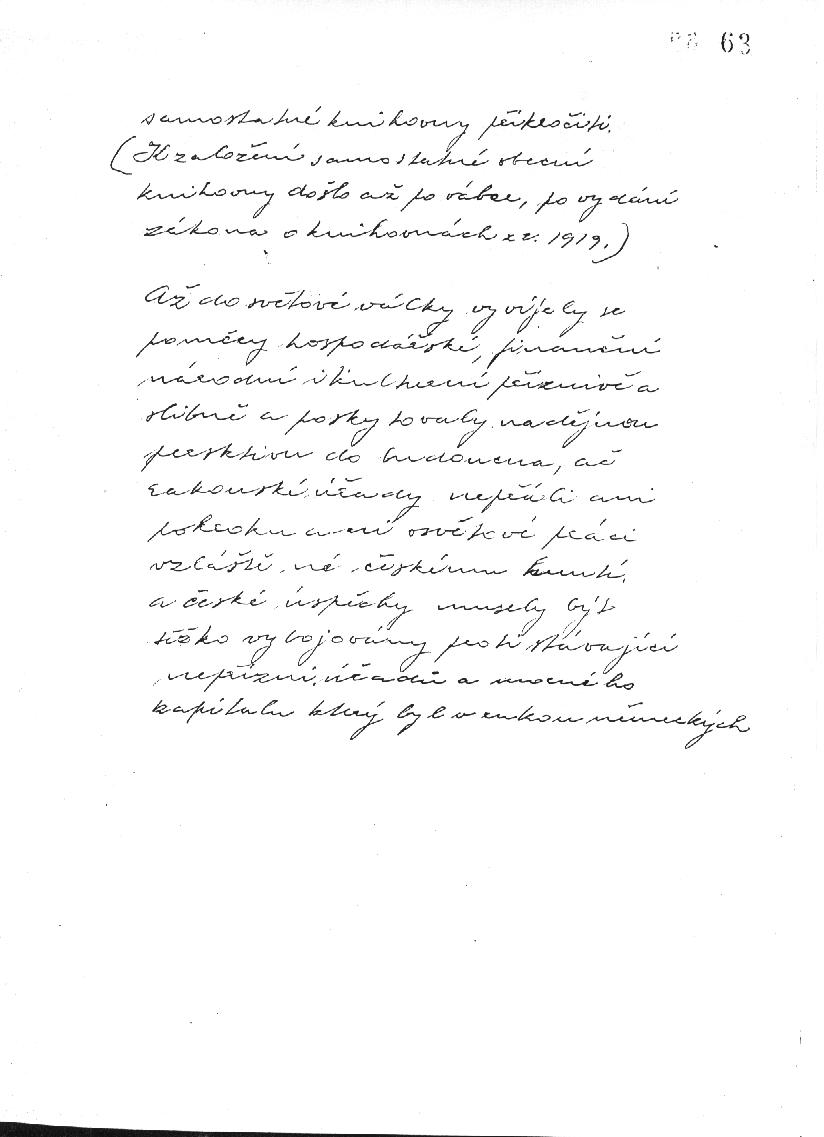 63
samostatné knihovny přikročiti.
(K založení samostatné obecní
knihovny došlo až po válce, po vydání
zákona o knihovnách z r. 1919.)
Až do světové války vyvíjely se
poměry hospodářské, finanční
národní i kulturní příznivě a
slibně a poskytovaly nadějnou
perspektivu do budoucna, ač
rakouské úřady nepřáli ani
pokroku ani osvětové práci
vzláště ne českému hnutí,
a české úspěchy musely být
těžko vybojovány proti stávající
nepřízni úřadů a mocného
kapitálu který byl v rukou německých